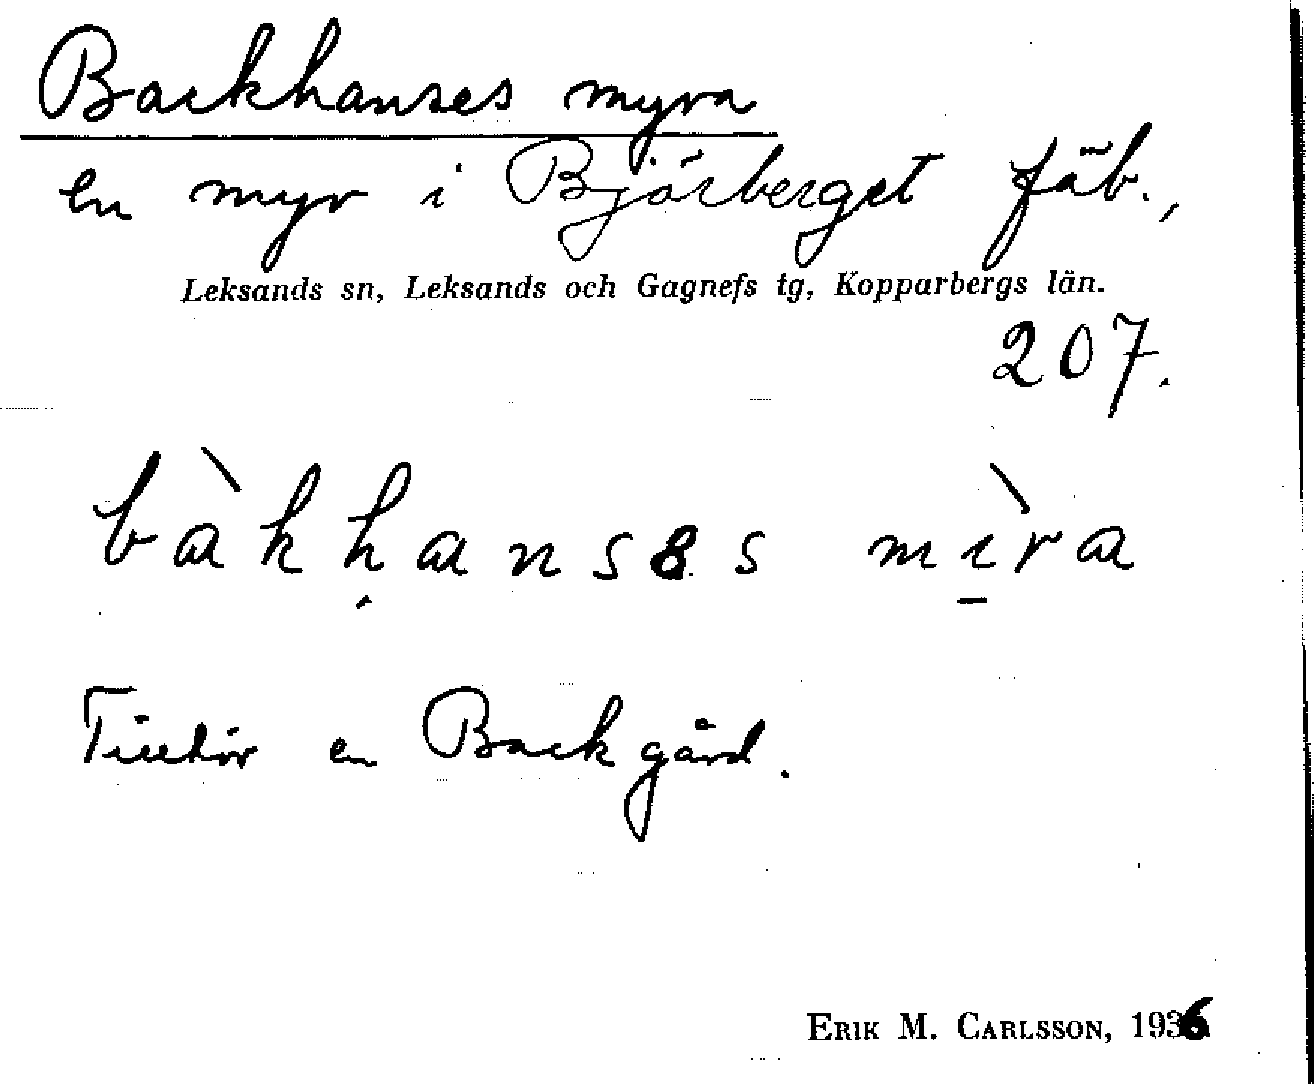 Backhanses myra
en myr i Björberget fäb.,
Leksands sn, Leksands och Gagnefs tg, Kopparbergs län.
207.
bàkḥansəs mı̱̀ra
Tillhör en Backgård.
ERIK M. CARLSSON, 1936